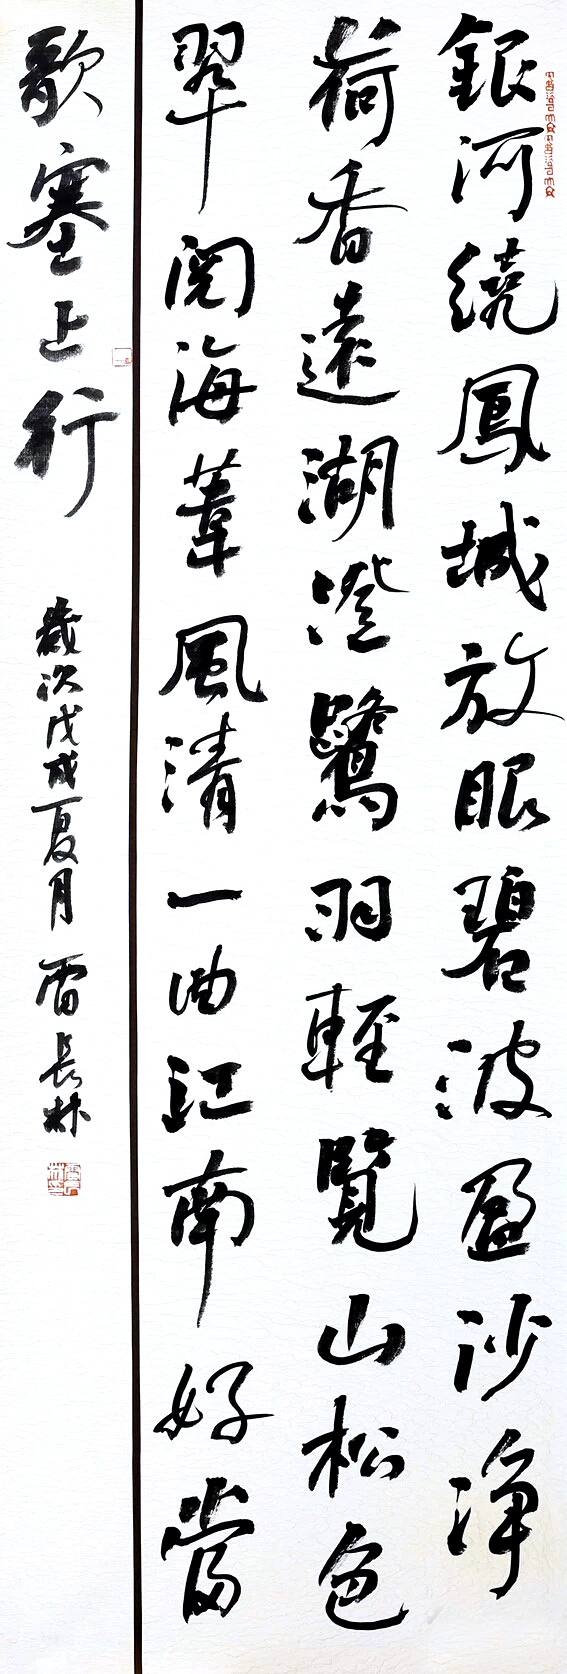 銀河繞鳳城放眼碧波盈沙淨
荷香遠湖澄鷺羽輕覽山松色
翠閱海葦風清一曲江南好當
歌塞上行
歲次戊戌夏月雷長林